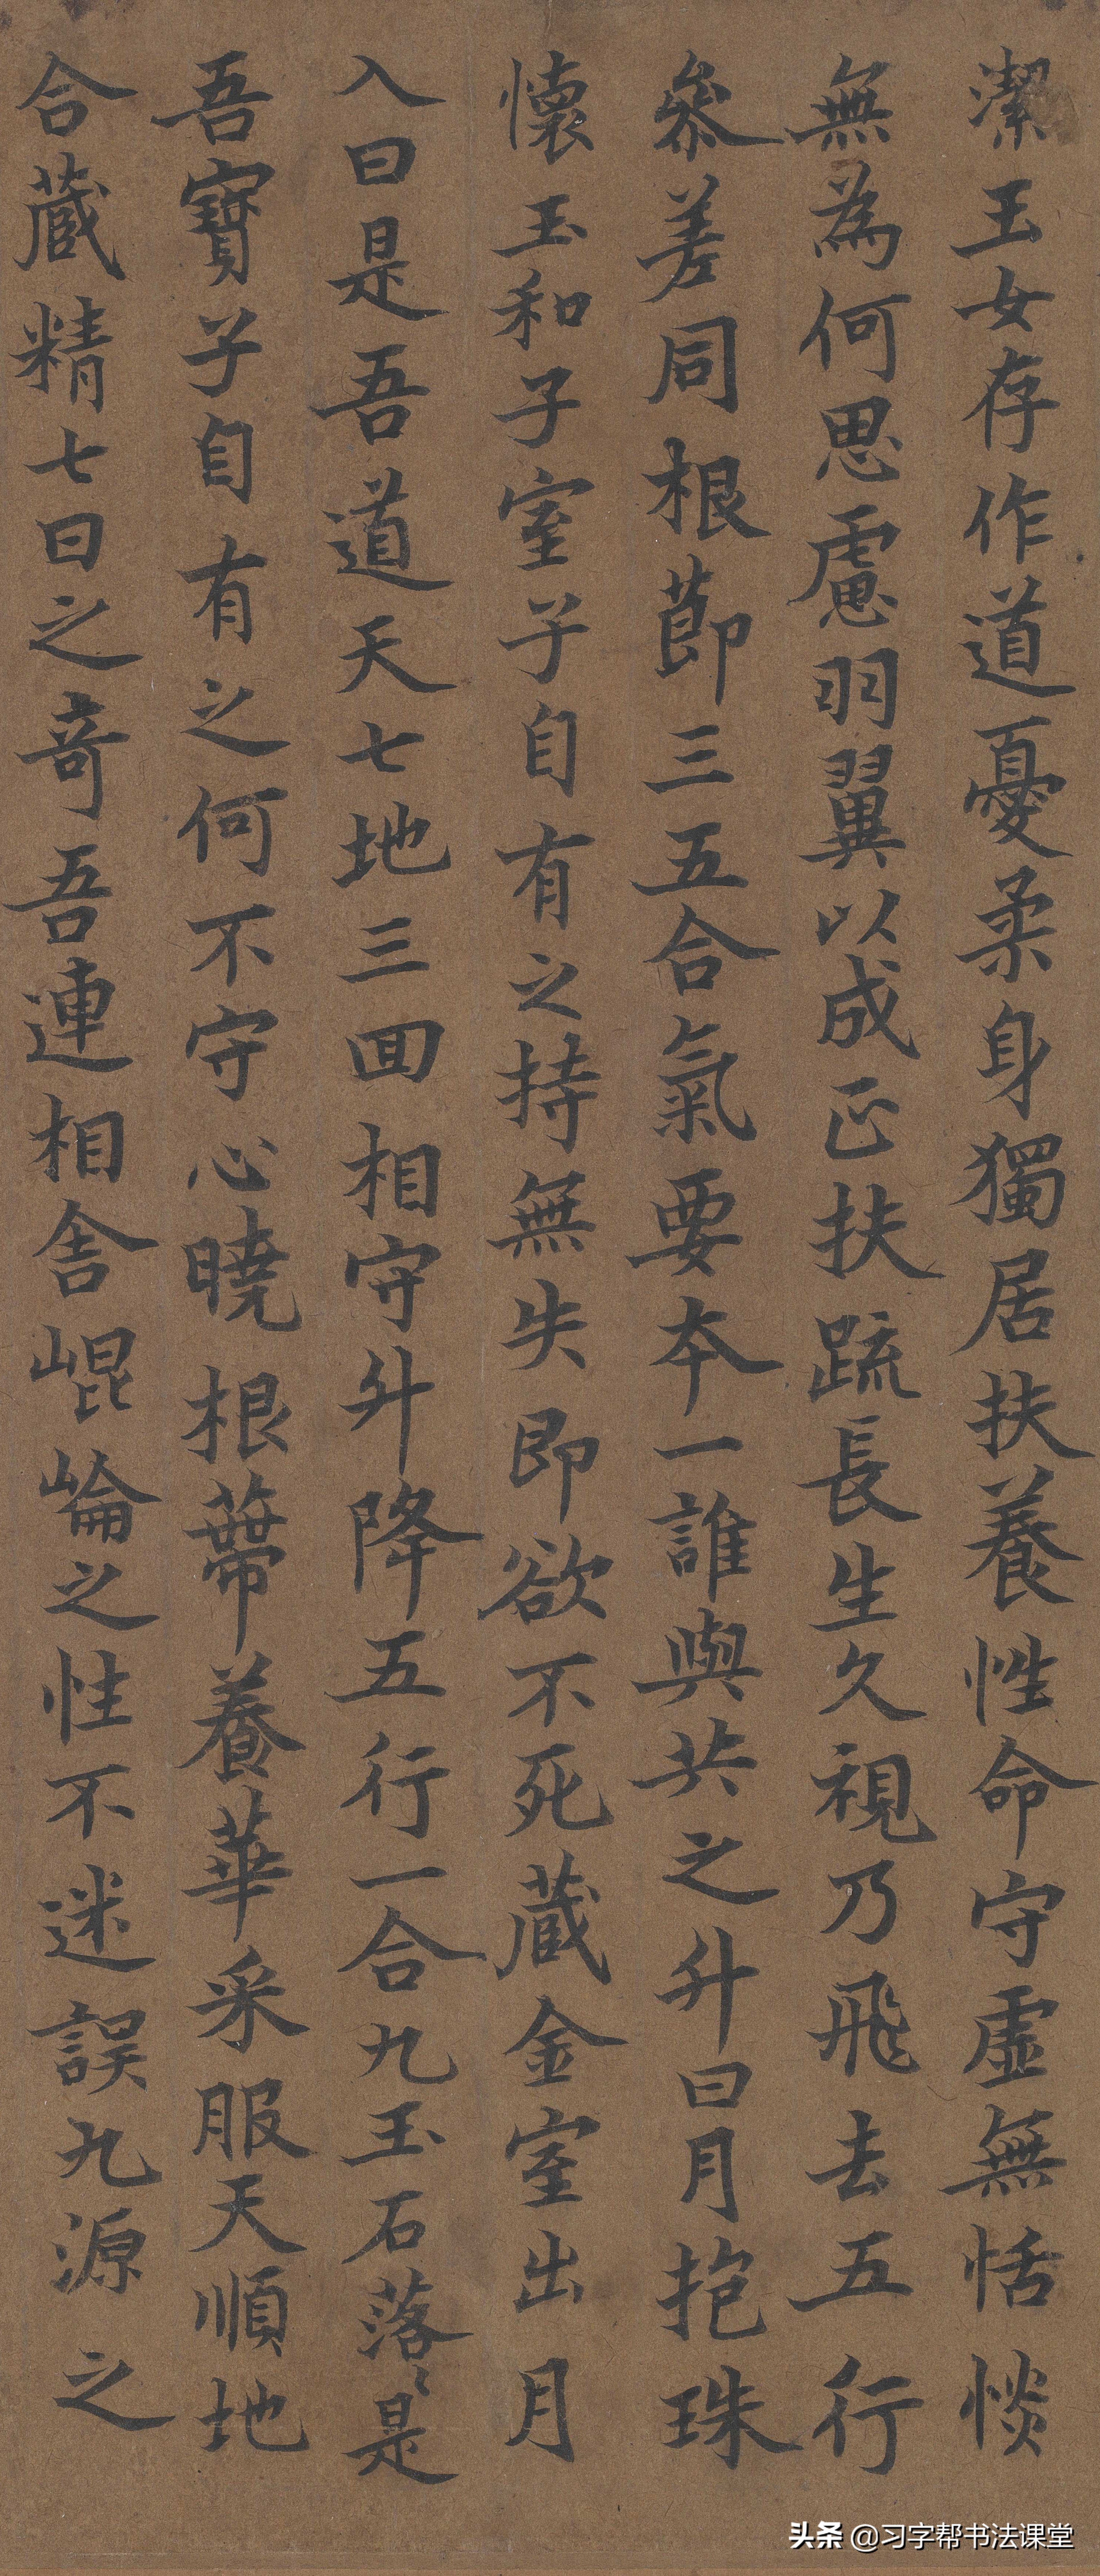 潔玉女存作道憂柔身獨居扶養性命守虛無恬惔
無為何思慮羽翼以成正扶疏長生久視乃飛去五行
參差同根莭三五合氣要本一誰與共之升日月抱珠
懷玉和子室子自有之持無失即欲不死藏金室出月
入日是吾道天七地三回相守升降五行一合九玉石落〻是
吾寶子自有之何不守心曉根蔕養華采服天順地
合藏精七日之奇吾連相舍崐崘之性不迷誤九源之
头条 @习字帮书法课堂